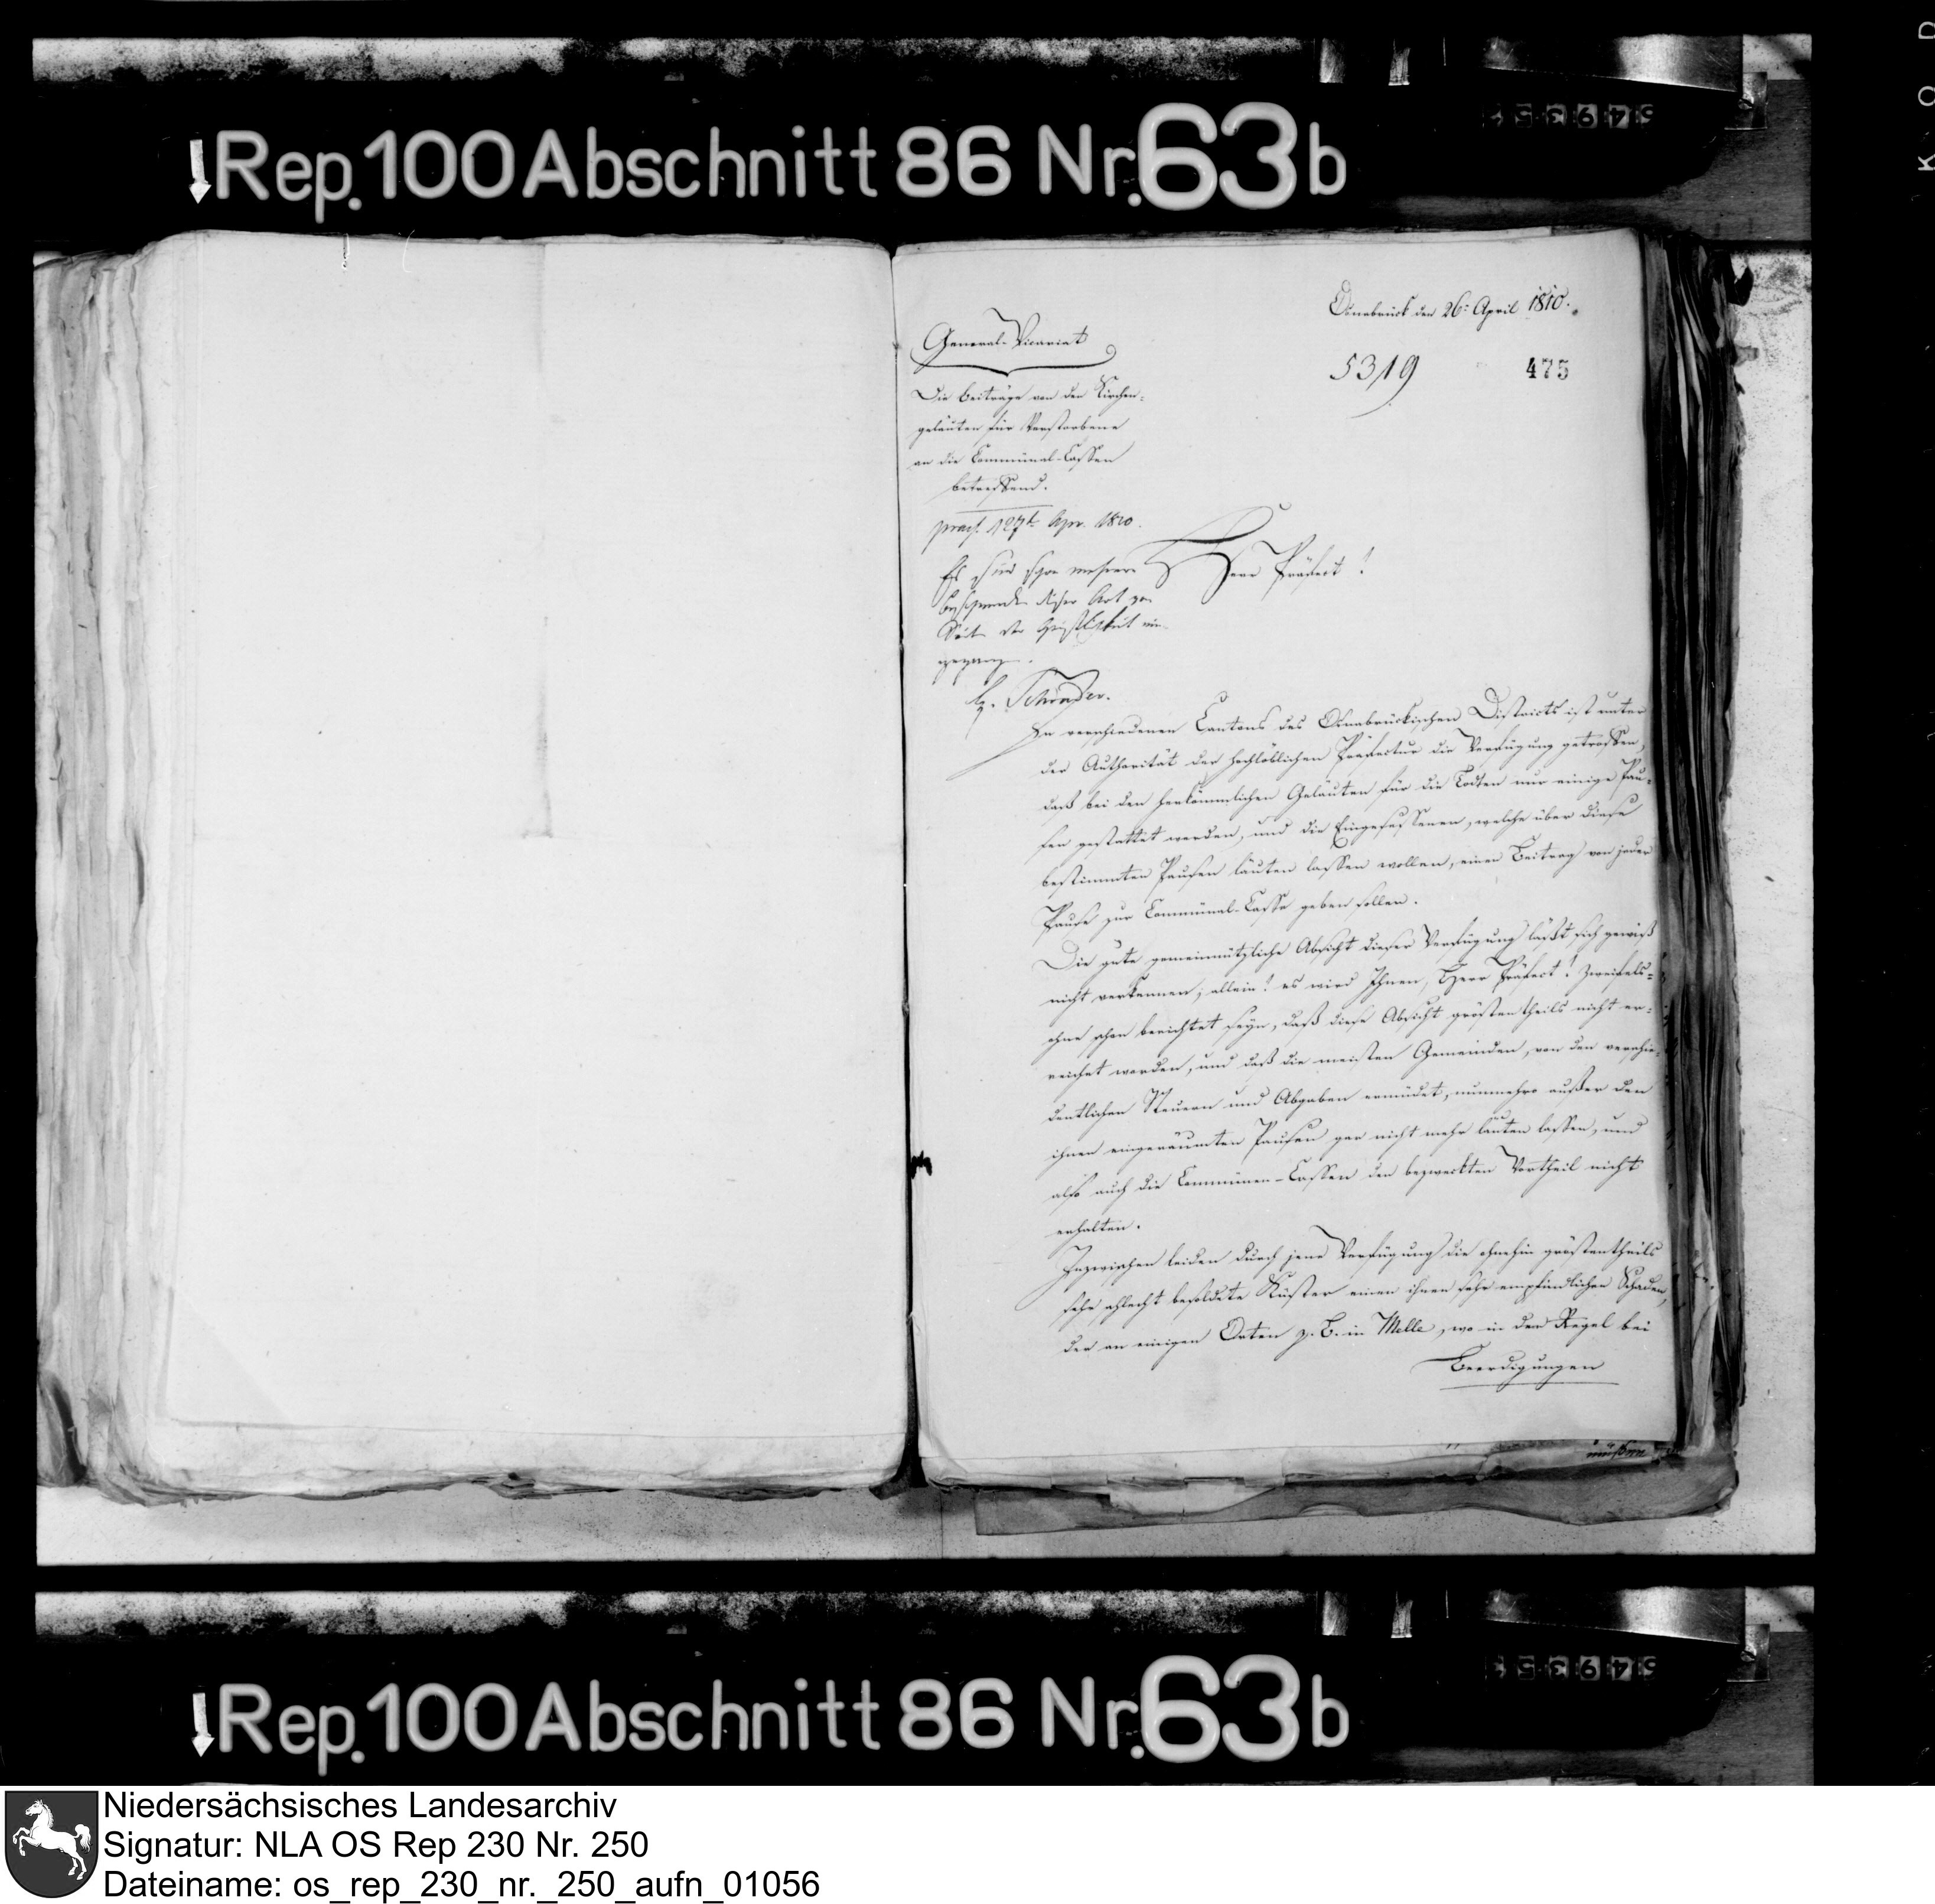 Rep. 100 Abschnitt 86 Nr. 63b
Osnabrück den 26: April 1810.
General-Vicariat
5319
475
Die Beiträge von den Kirchen-
geläuten für Verstorbene
an die Communal-Cassen
betreffend.
praes. 27t Apr. 1810.
Es sind schon mehrere
dieser Art von
Seiten der Geistlichkeit ein-
Herr Präfect!
In verschiedenen Cantons des Osnabrückischen Districts ist unter
der Authorität der hochlöblichen Präfectur die Verfügung getroffen,
daß bei den herkömmlichen Geläuten für die Todten nur einige Pau-
sen gestattet werden, und die Eingesessenen, welche über diese
bestimmten Pausen läuten lassen wollen, einen Beitrag von jeder
Pause zur Communal-Casse geben sollen.
Die gute gemeinnützliche Absicht dieser Verfügung läßt sich gewiß
nicht verkennen; allein! es wird Ihnen, Herr Präfect! zweifels-
ohne schon berichtet seyn, daß diese Absicht größtentheils nicht er-
reichet worden, und daß die meisten Gemeinden, von den
Steuern und Abgaben ermüdet, nunmehro außer den
ihnen eingeräumten Pausen gar nicht mehr läuten lassen, und
also auch die Communen-Cassen den bezweckten Vortheil nicht
erhalten.
Inzwischen leiden durch jene Verfügung die ohnehin größtentheils
sehr schlecht besoldete Küster einen ihnen sehr empfindlichen Schaden,
der an einigen Orten z. B. in Melle, wo in der Regel bei
Beerdigungen
Rep. 100 Abschnitt 86 Nr. 63b
Niedersächsisches Landesarchiv
Signatur: NLA OS Rep 230 Nr. 250
Dateiname: os_rep_230_nr._250_aufn_01056